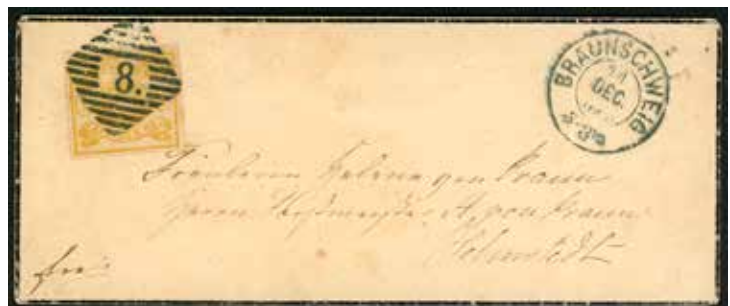 8.
BRAUNSCHWEIG
DEC.
Fräulein Helene von Praun
Herrn A. von Praun
Helmstedt
frei